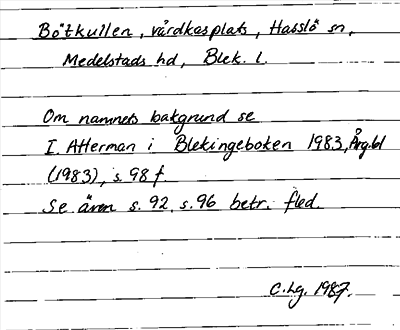 Bötkullen, vårdkasplats, Hasslö sn,
Medelstads hd, Blek. l.
Om namnets bakgrund se
I. Atterman i Blekingeboken 1983, Årg. 61
(1983), s. 98 f.
Se även s. 92, s. 96 betr. fled.
C. Lg. 1987.